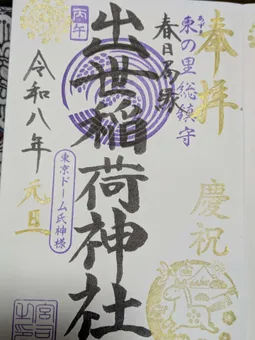 奉拝
慶祝
東の里総鎮守
あずま
春日局
出世稲荷神社
東京ドーム氏神様
丙午
令和八年
元旦